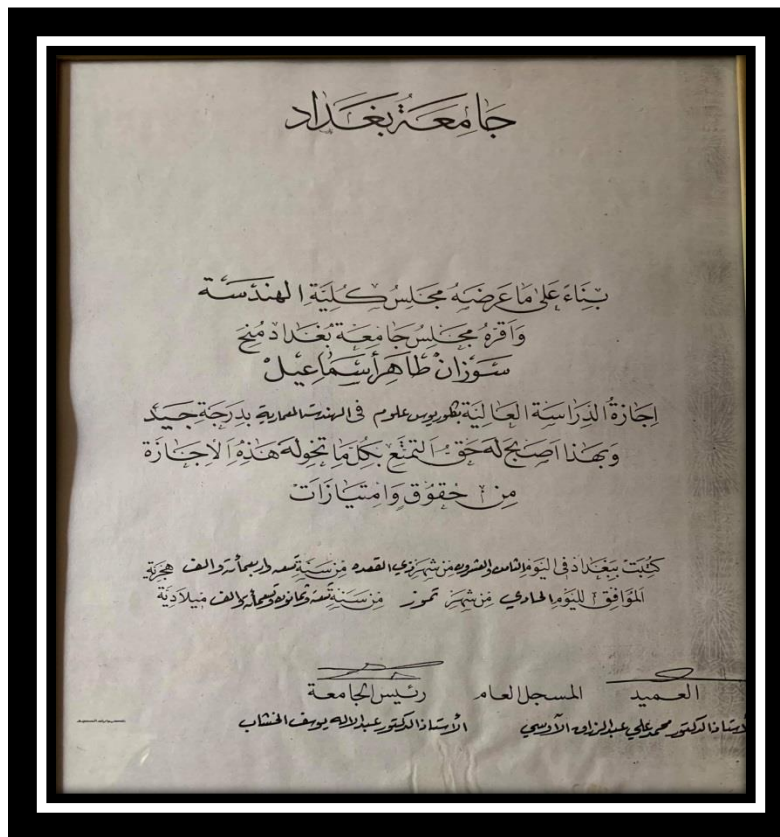 جامعة بغداد
بناءً على ما عرضه مجلس كلية الهندسة
واقره مجلس جامعة بغداد منح
سوزان طاهر أسماعيل
اجازة الدراسة العالية بكلوريوس علوم في الهندسة المعمارية بدرجة جيد
وبهذا اصبح له حق التمتع بكل ما تخوله هذه الاجازة
من حقوق وامتيازات
كتبت ببغداد في اليوم الثامن والعشرون من شهر ذي القعده من سنة تسعه واربعمأئة والف هجرية
الموافق لليوم الحادي من شهر تموز من سنة تسعة وثمانون وتسعمأئة والف ميلادية
العميد المسجل العام رئيس الجامعة
الأستاذ الدكتور محمد علي عبدالرزاق الآوسي الأستاذ الدكتور عبدالاله يوسف الخشاب